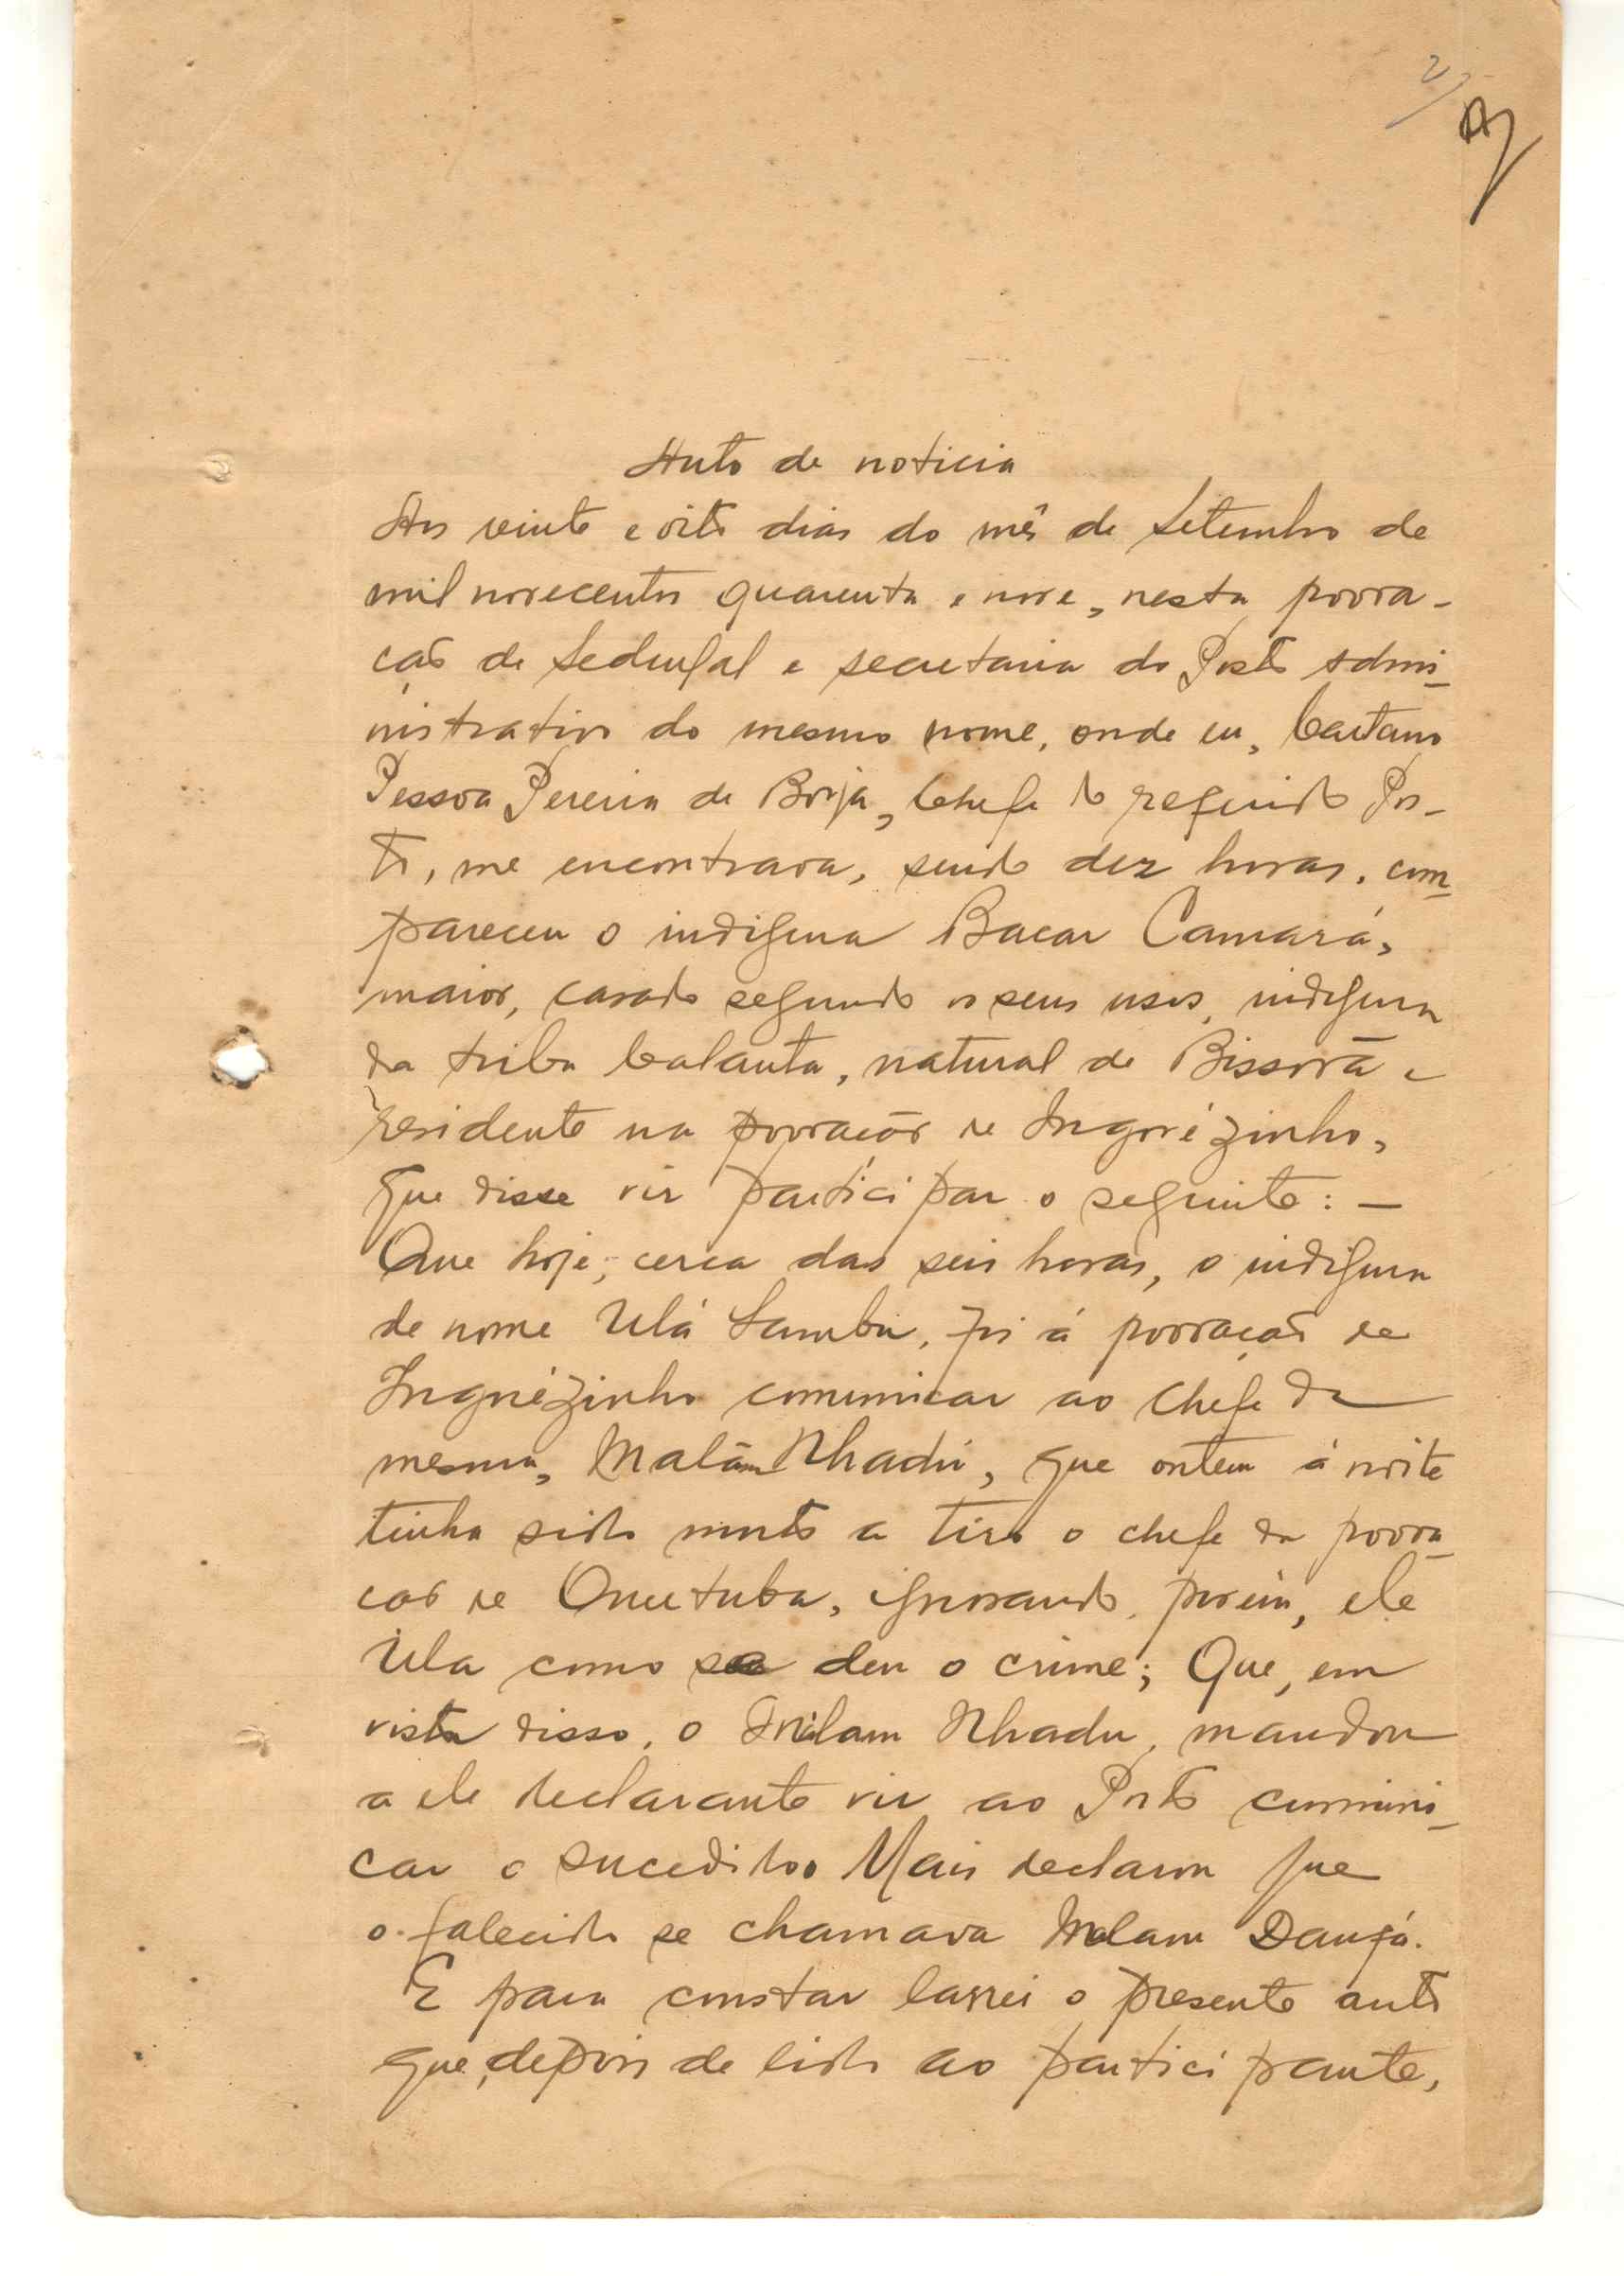 2
Auto de noticia
Aos vinte e oito dias do mês de Setembro de
mil novecentos quarenta e nove, nesta povoa-
ção de Sedengal e secretaria do Posto Admi-
nistrativo do mesmo nome, onde eu, Caetano
Pessoa Pereira de Borja, Chefe do referido Pos-
to, me encontrava, sendo dez horas, com-
pareceu o indigena Bacar Camará,
maior, casado segundo os seus usos, indigena
da tribu balanta, natural de Bissorã e
residente na povoação de Ingorézinho,
que disse vir participar o seguinte: —
Que hoje, cerca das seis horas, o indigena
de nome Ulá Sambu, foi á povoação de
Ingorézinho comunicar ao chefe da
mesma, Malam Nhadú, que ontem á noite
tinha sido morto a tiro o chefe da povoa-
ção de, ignorando, porém, ele
Ula como se deu o crime; Que, em
vista disso, o Malam Nhadu, mandou
a ele declarante vir ao Posto comuni-
car o sucedido. Mais declarou que
o falecido se chamava Malam
E para constar lavrei o presente auto
que, depois de lido ao participante,